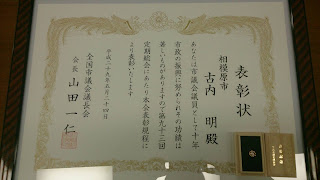 表彰状
相模原市
古内 明殿
あなたは市議会議員として十年
市政の振興に努められその功績は
著しいものがありますので第九十三回
定期総会にあたり本会表彰規程に
より表彰いたします
平成二十九年五月二十四日
全国市議会議長会
会長 山田一仁